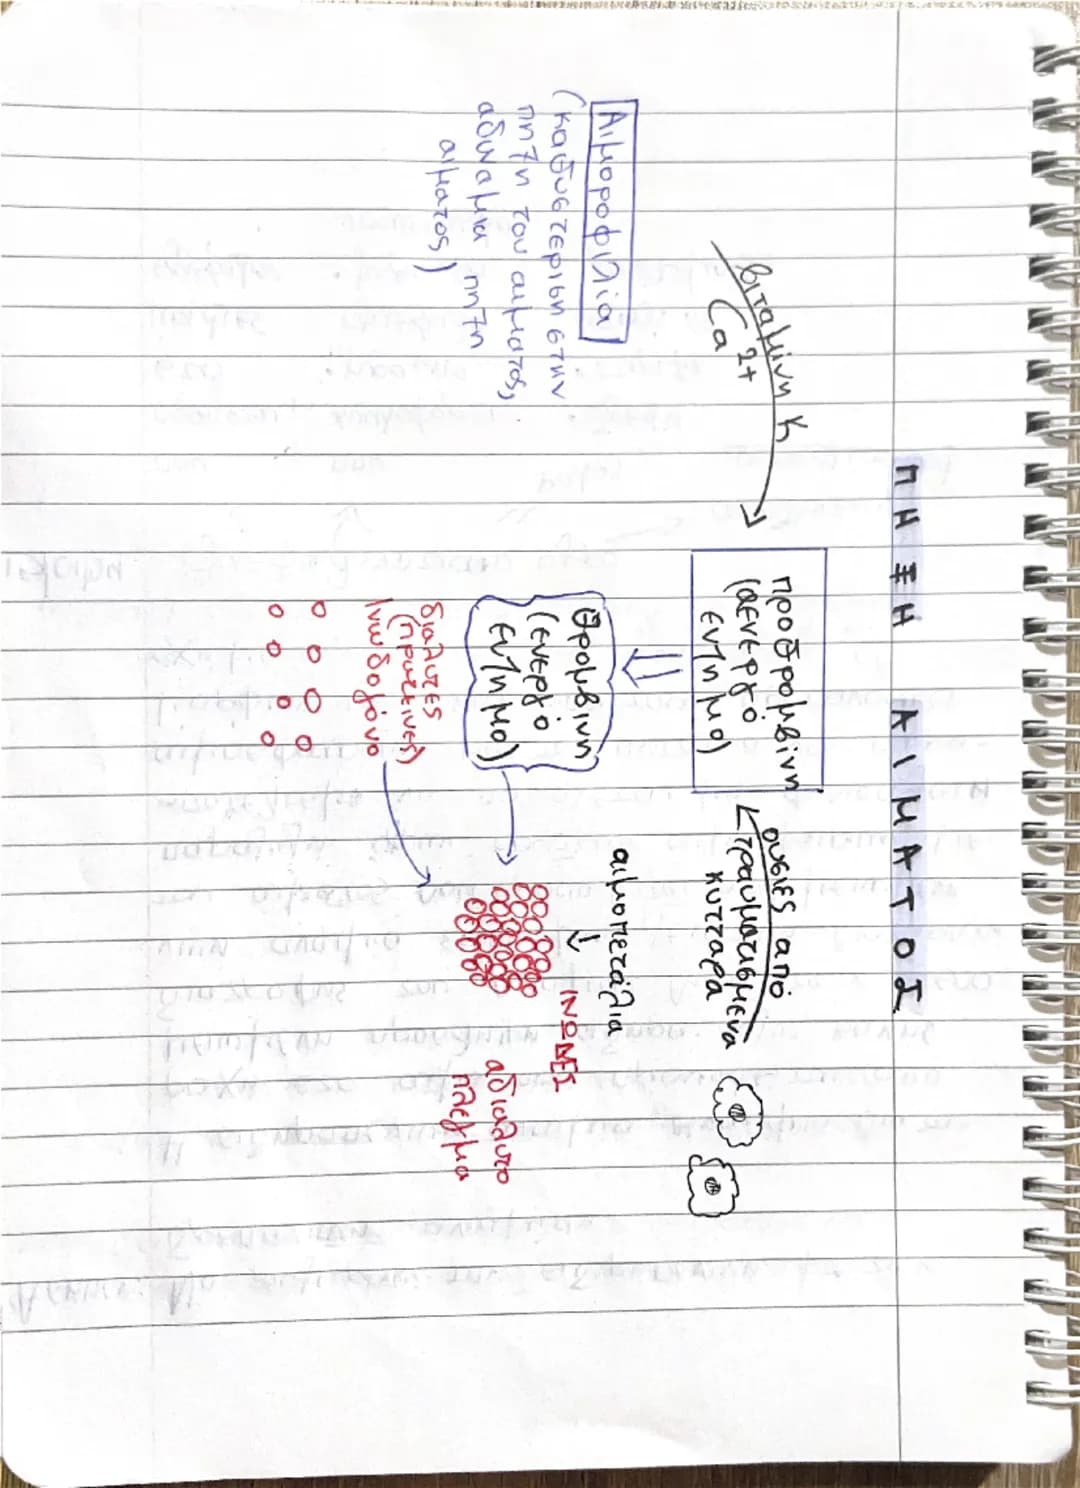 ΠΗΞΗ ΑΙΜΑΤΟΣ
βιταμίνη Κ
Ca 2+
προθρομβίνη
(ανενεργό
ένζημο)
ουσίες από
τραυματισμένα
κύτταρα
Θρομβίνη
(ενεργό
ένζημο)
αιμοπετάλια
ΙΝΩΔΕΣ
αδιάλυτο
πλέγμα
διαλυτές
(πρωτεινες)
Ινωδογόνο
Αιμοροφιλία
(καθυστέριση στην
πηξη του αιματος,
αδυναμια πηξη
αιματος)